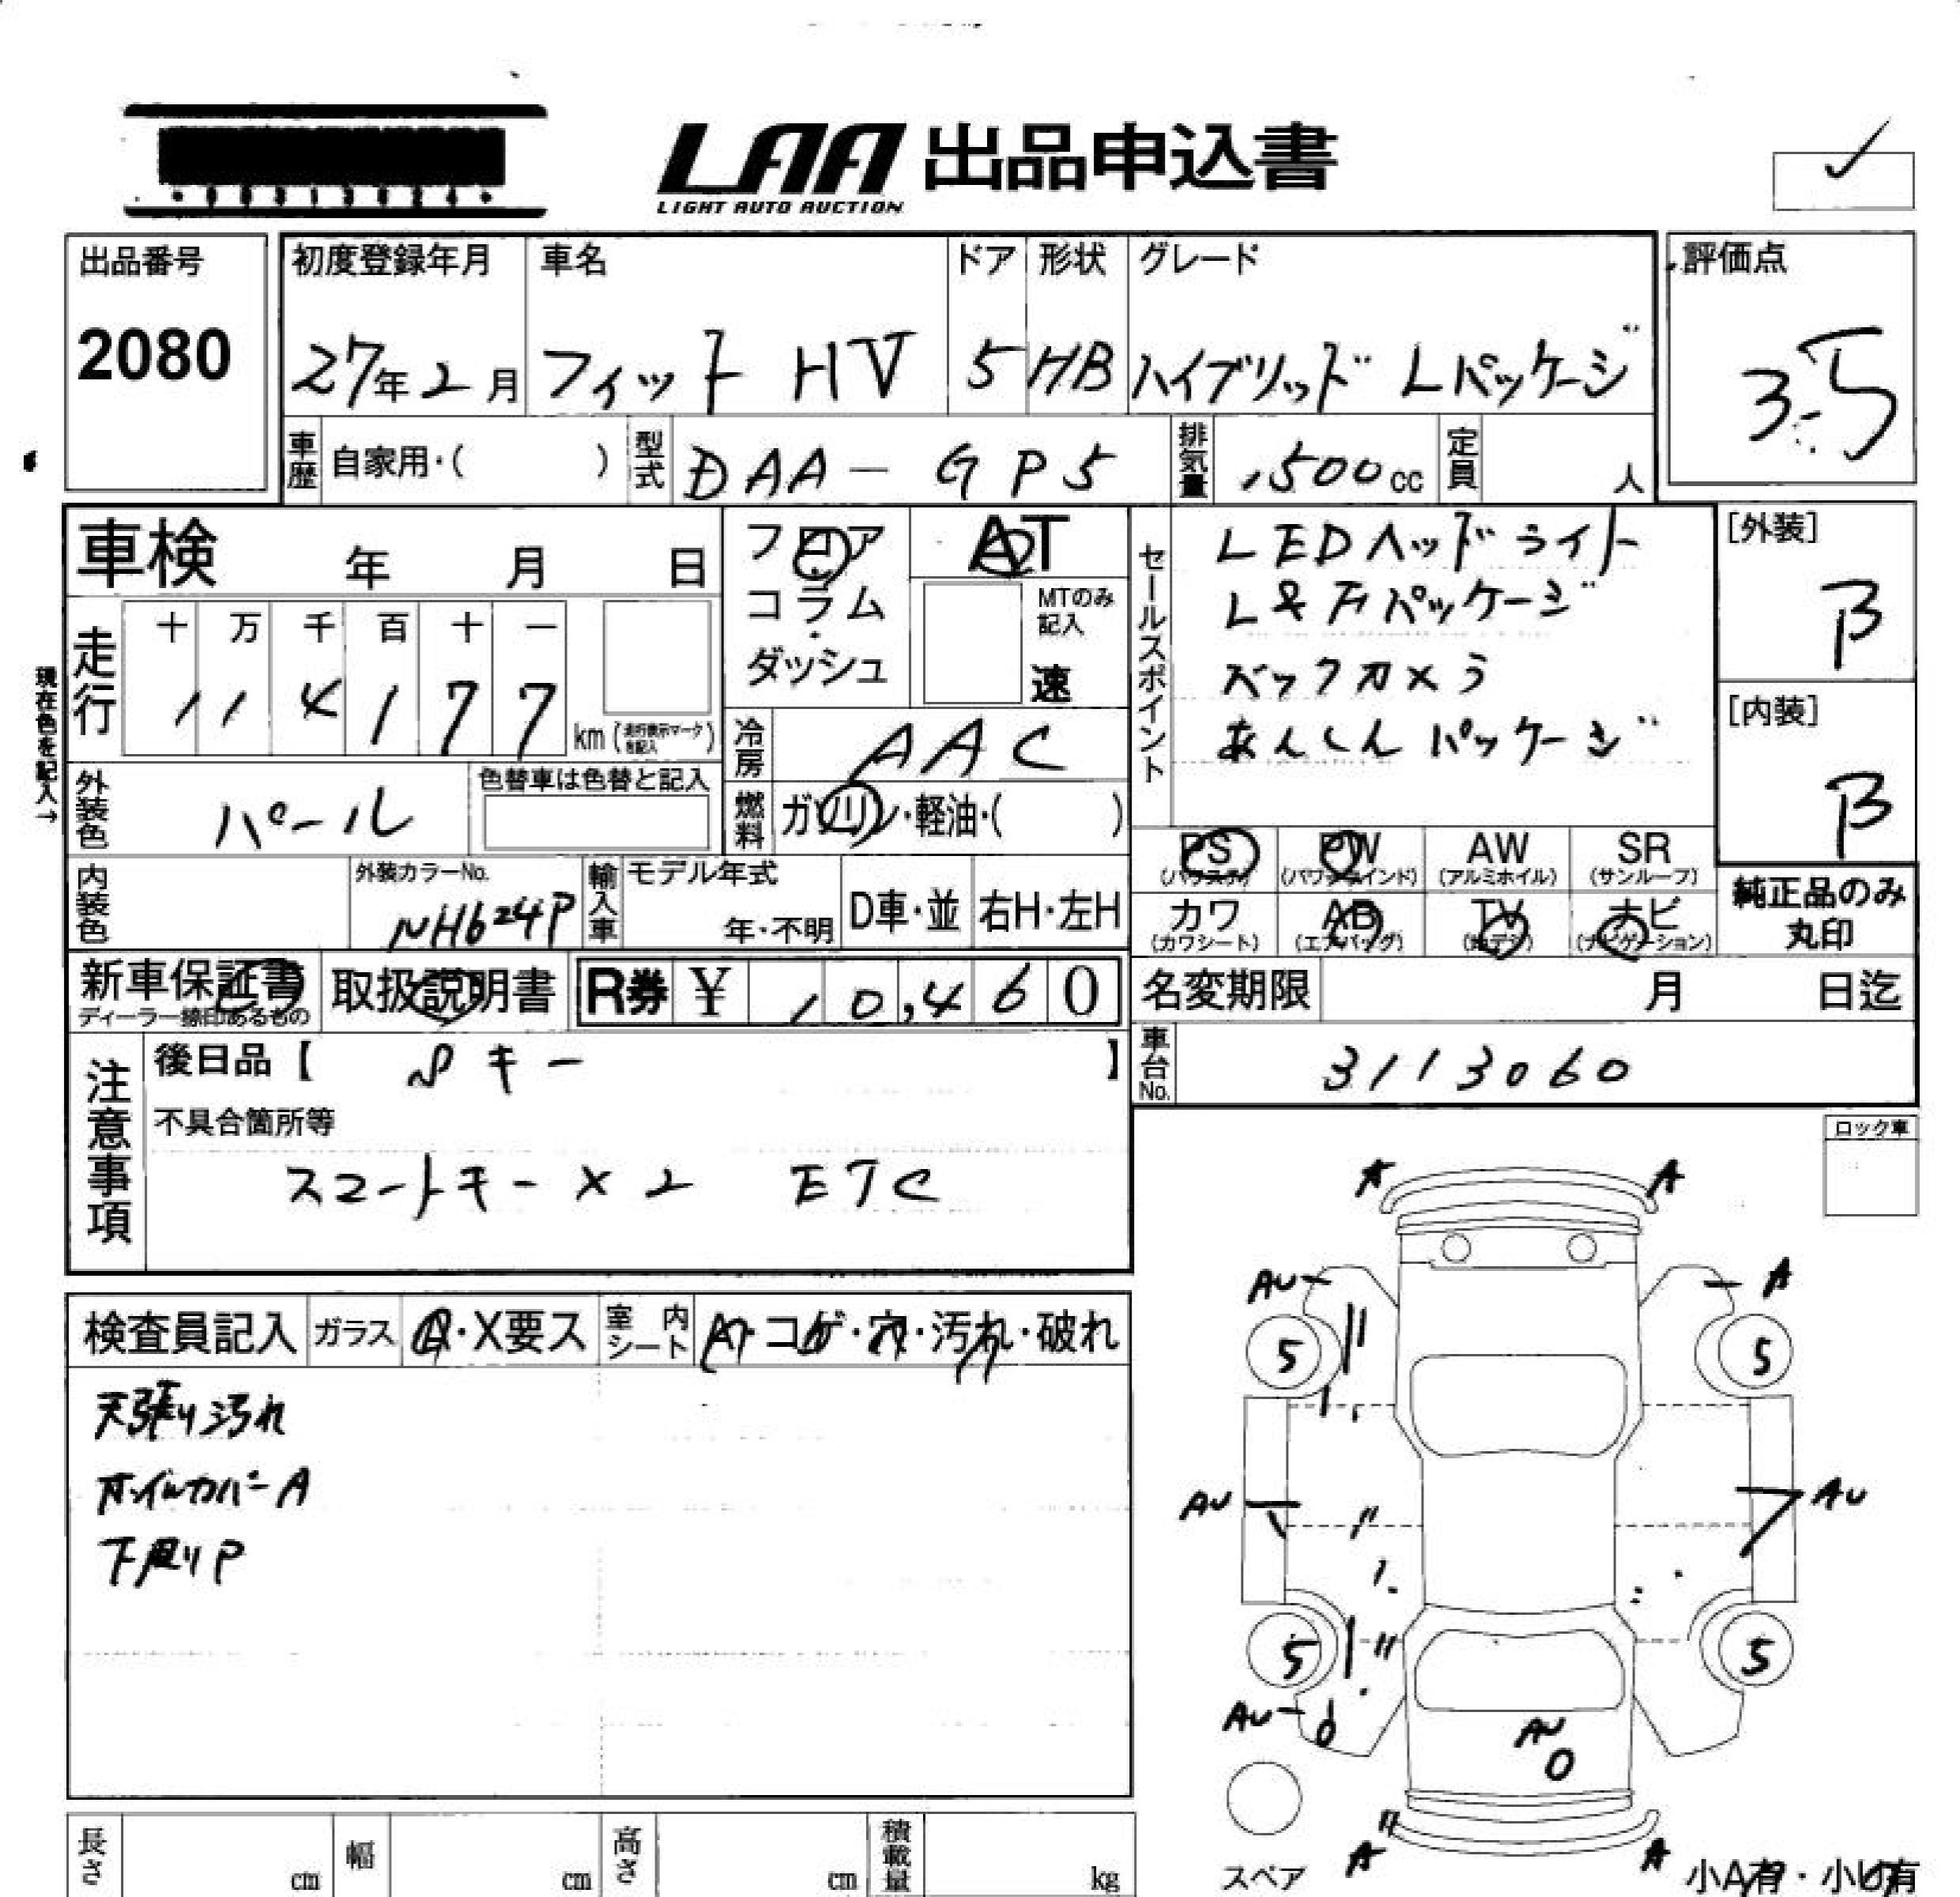 LAA 出品申込書
LIGHT AUTO AUCTION
出品番号
2080
初度登録年月
27年2月
車名
フィット HV
ドア
5
形状
HB
グレード
ハイブリッド Lパッケージ
評価点
3.5
車歴 自家用・( )
型式 DAA-GP5
排気量 1500cc
定員 人
車検 年 月 日
フロア
コラム
ダッシュ
AT
MTのみ記入
速
セールスポイント
LEDヘッドライト
L&Fパッケージ
バックカメラ
あんしんパッケージ
[外装]
B
[内装]
B
現在色を記入→
走行
十 万 千 百 十 一
1 1 4 1 7 7
km (走行表示マークを記入)
冷房 AAC
外装色 パール
色替車は色替と記入
燃料 ガソリン・軽油・( )
内装色
外装カラーNo.
NH624P
輸入車
モデル年式
年・不明
D車・並
右H・左H
PS
(パワステ)
PW
(パワーウインド)
AW
(アルミホイル)
SR
(サンルーフ)
カワ
(カワシート)
AB
(エアバッグ)
TV
ナビ
(ナビゲーション)
純正品のみ
丸印
新車保証書
ディーラー捺印あるもの
取扱説明書
R券 ¥ 10,460
名変期限 月 日迄
車台No. 3113060
注意事項
後日品【 キー 】
不具合箇所等
スマートキー×2 ETC
ロック車
検査員記入
ガラス
・X要ス
室内シート
・コゲ・穴・汚れ・破れ
天張り汚れ
ホイルカバーA
下廻りP
A A
AU A
5 5
AU AU
5 5
AU
AU
A A
スペア
小A有・小U有
長さ cm
幅 cm
高さ cm
積載量 kg